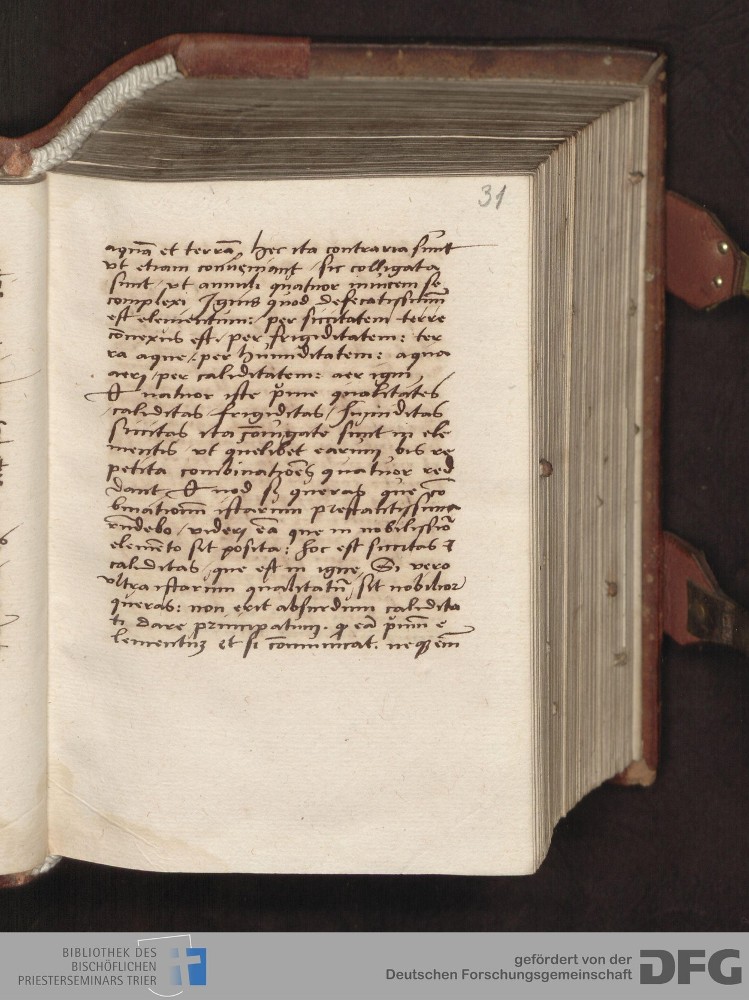 31
aquā et terrā, hec ita contraria sunt
vt etiam conueniant / sic colligata
sunt / vt annuli quatuor inuicem se
complexi Ignis quod defecatissimū
est elementum: per siccitatem terre
cōnexus est / per frigiditatem: ter
ra aque / per humiditatem: aqua
aeri / per caliditatem: aer igni
Quatuor iste p̄me qualitates
caliditas frigiditas / humiditas
siccitas ita cōiugate sunt in ele
mentis vt quelibet earum bis re
petita combinatiōes quatuor red
dant Quod si queras que cō
binationū istarum prestantissima
rn̄debo / videri eā que in nobilissīō
elemēto sit posita: hoc est siccitas &
caliditas / que est in igne, Si vero
vltra istarum qualitatū / sit nobilior
queras: non erit absurdum calidita
ti dare principatum. ꝙ eā p̄mū e
lementūꝫ et si cōmunicat. neqꝫ em̄
BIBLIOTHEK DES
BISCHÖFLICHEN
PRIESTERSEMINARS TRIER
gefördert von der
Deutschen Forschungsgemeinschaft
DFG